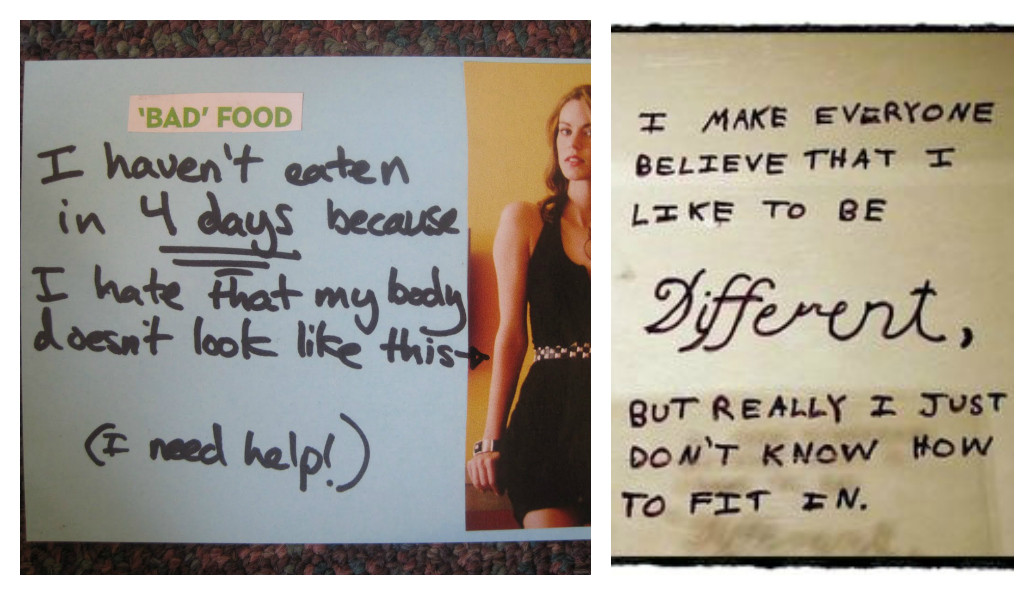 'BAD' FOOD
I haven't eaten
in 4 days because
I hate that my body
doesn't look like this
(I need help!)
I MAKE EVERYONE
BELIEVE THAT I
LIKE TO BE
Different,
BUT REALLY I JUST
DON'T KNOW HOW
TO FIT IN.